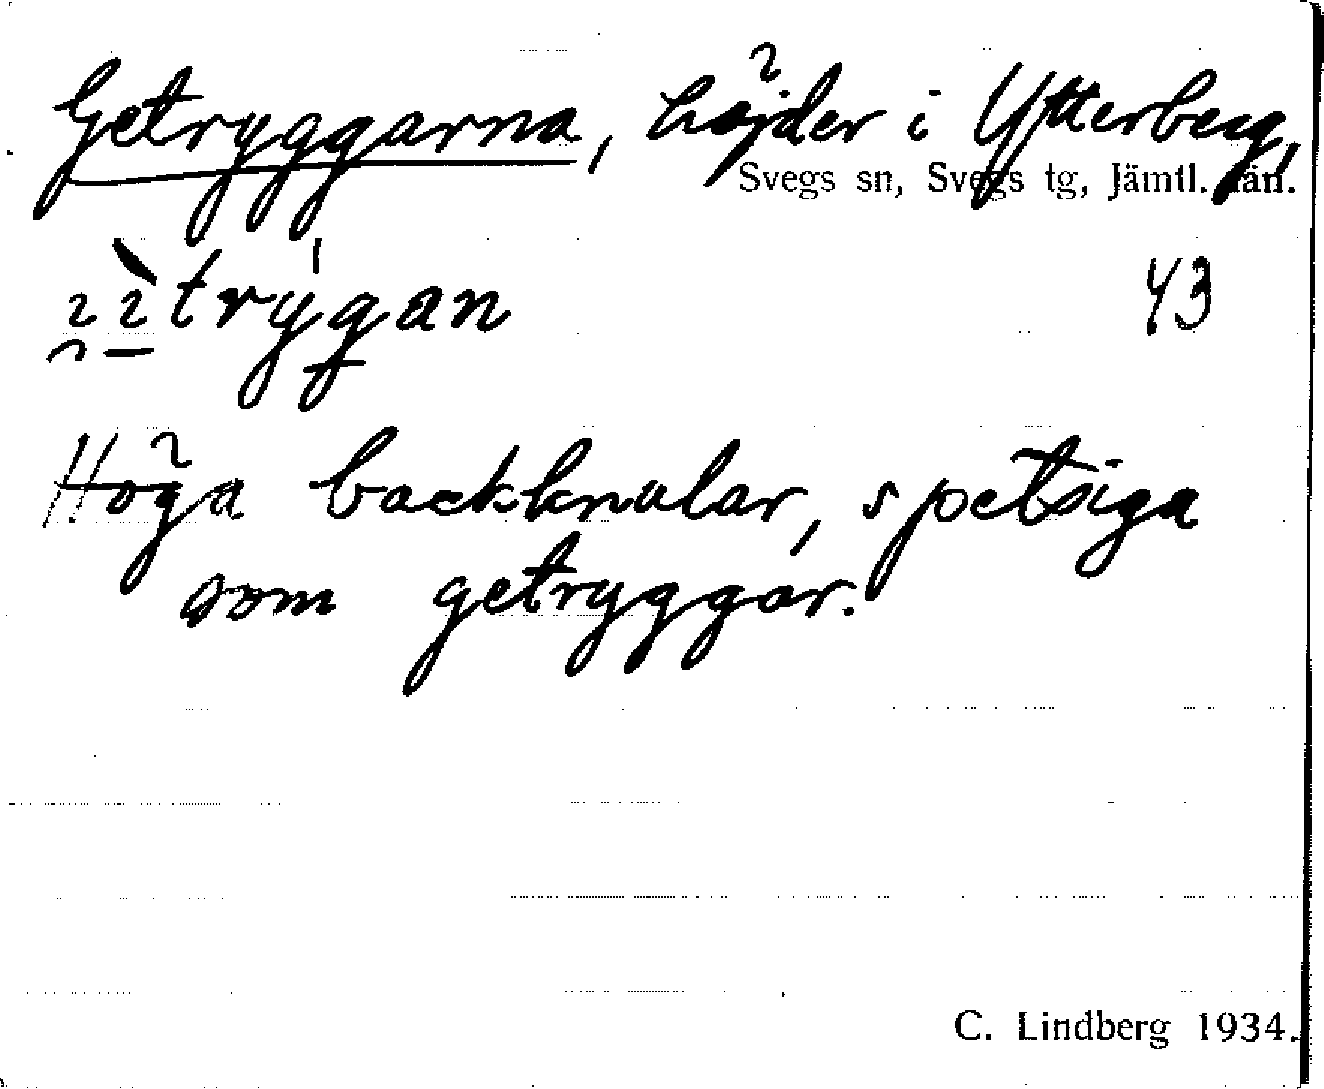 Getryggarna, höjder i Ytterberg,
Svegs sn, Svegs tg, Jämtl. län.
43
Höga backknular, spetsiga
som getryggar.
C. Lindberg 1934.